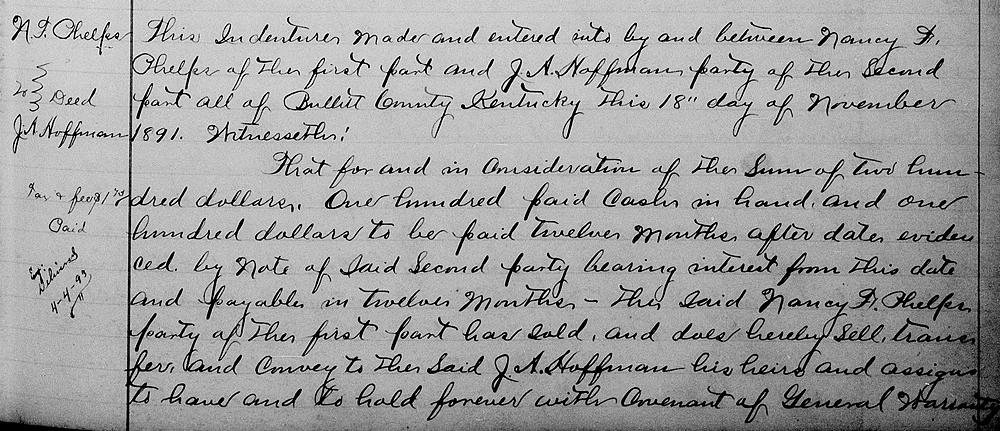 N. F. Phelps
To } Deed
J. A. Hoffman
Tax & fees $1 75
Paid
Delivered
4-4-93
This Indenture made and entered into by and between Nancy F.
Phelps of the first part and J. A. Hoffman party of the Second
part all of Bullitt County Kentucky this 18" day of November
1891. Witnesseth:
That for and in Consideration of the Sum of two hun-
dred dollars. One hundred paid Cash in hand, and one
hundred dollars to be paid twelve Months after date, eviden
ced. by Note of Said Second party bearing interest from this date
and payable in twelve Months - the said Nancy F. Phelps
party of the first part has sold, and does hereby Sell, trans
fer, and Convey to the Said J. A. Hoffman his heirs and assigns
to have and to hold forever with Covenant of General Warranty,